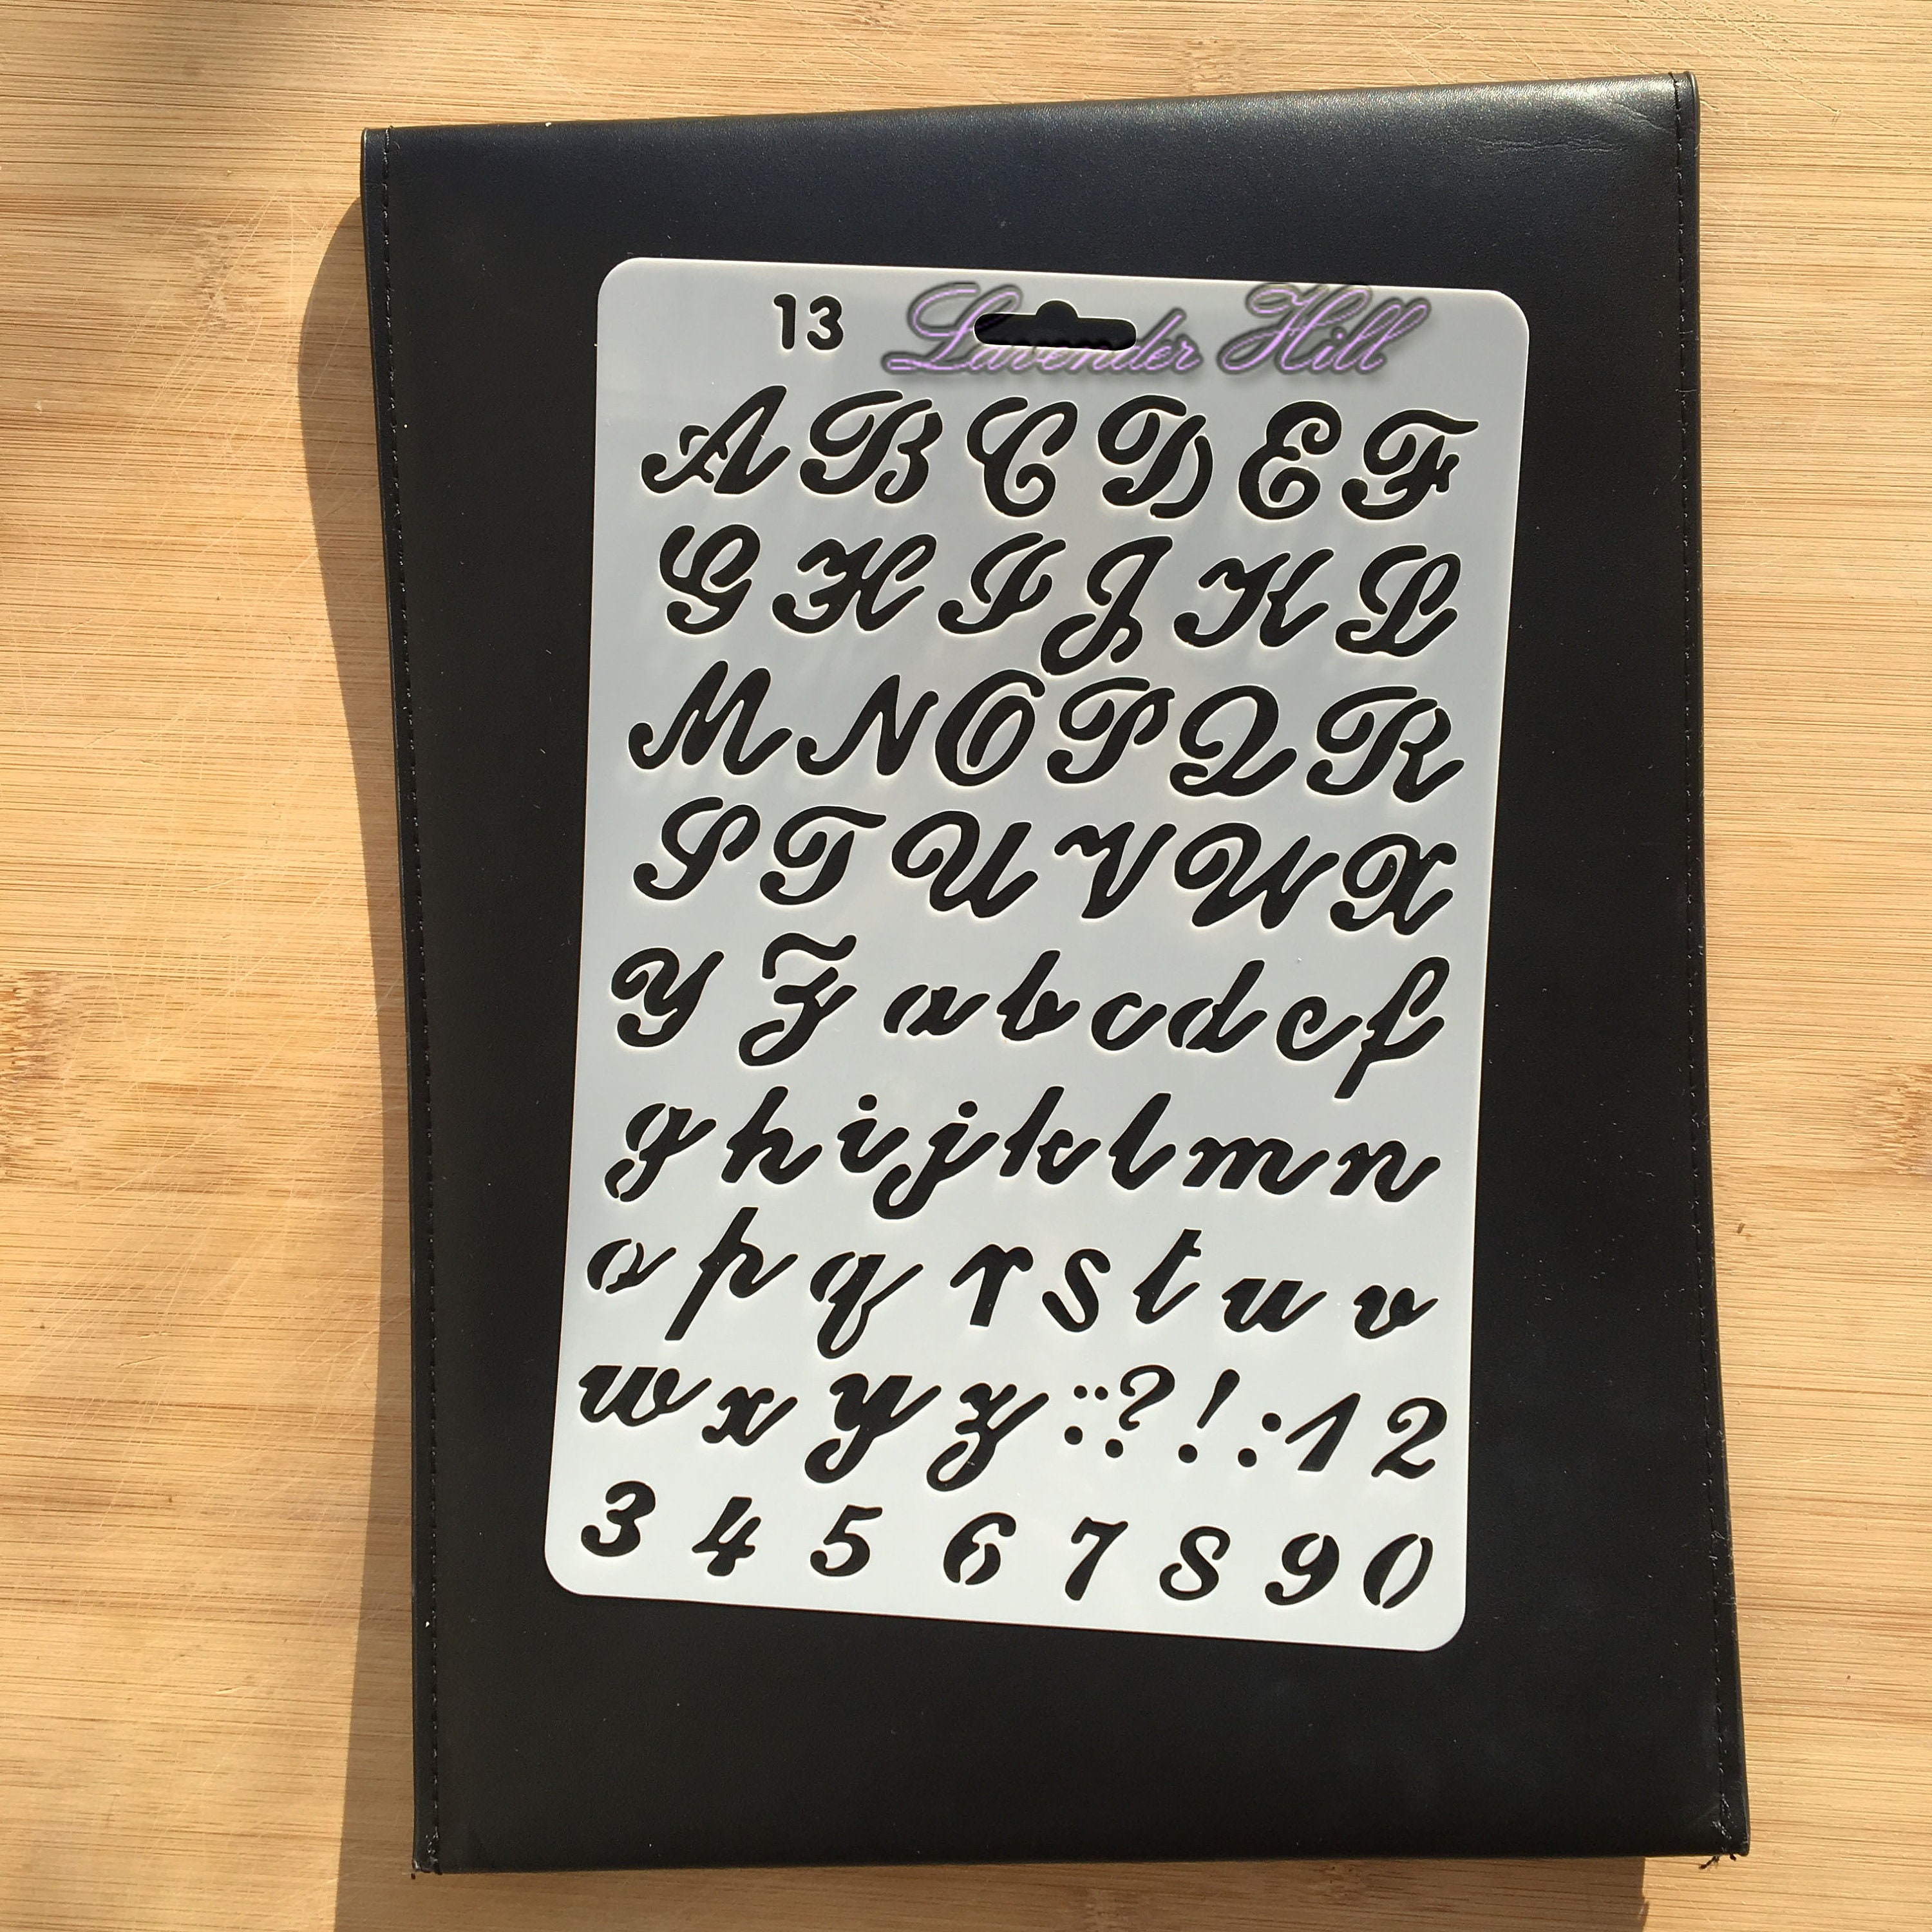 13 Lavender Hill
A B C D E F
G H I J K L
M N O P Q R
S T U V W X
Y Z a b c d e f
g h i j k l m n
o p q r s t u v
w x y z : ¨ ? ! : 1 2
3 4 5 6 7 8 9 0